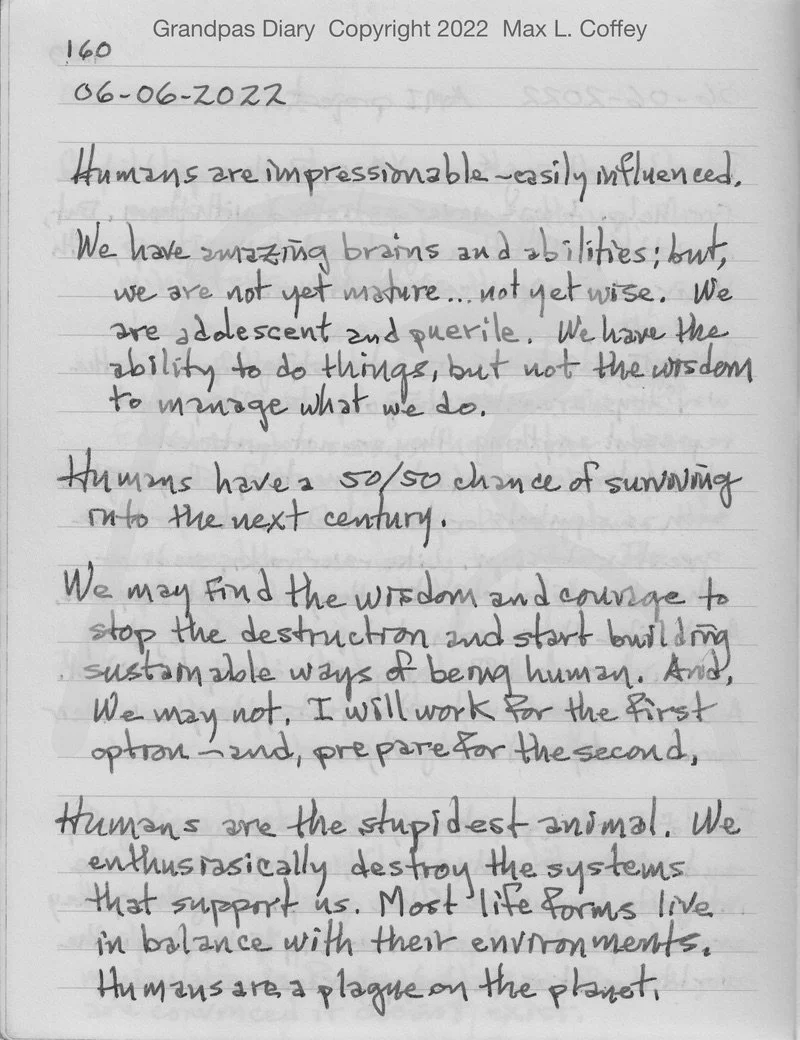 Grandpas Diary Copyright 2022 Max L. Coffey
160
06-06-2022
Humans are impressionable - easily influenced.
We have amazing brains and abilities; but,
we are not yet mature... not yet wise. We
are adolescent and puerile. We have the
ability to do things, but not the wisdom
to manage what we do.
Humans have a 50/50 chance of surviving
into the next century.
We may find the wisdom and courage to
stop the destruction and start building
sustainable ways of being human. And,
We may not. I will work for the first
option - and, prepare for the second,
Humans are the stupidest animal. We
enthusiasically destroy the systems
that support us. Most life forms live
in balance with their environments.
Humans are a plague on the planet.